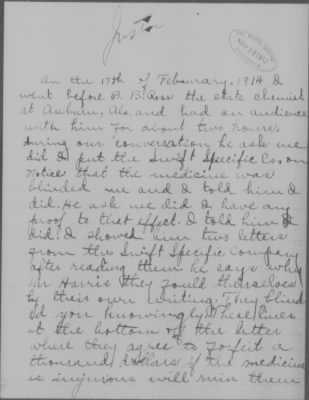 On the 17th of Febuary, 1914 I
went before B. B. Ross the state chemist
at Auburn, Ala and had an audience
with him for about two hours.
During our conversation he ask me
did I put the Swift Specific Co, on
notice that the medicine was
blinded me and I told him I
did. He ask me did I have any
proof to that effect. I told him I
did. I showed him two letters
from the Swift Specific Company
after reading them he says why
Mr Harris they
by their own writing. They blind
ed you knowingly. These lines
at the bottom of the letter
where they agree to forfeit a
thousand dollars if the medicine
is injurious will ruin them